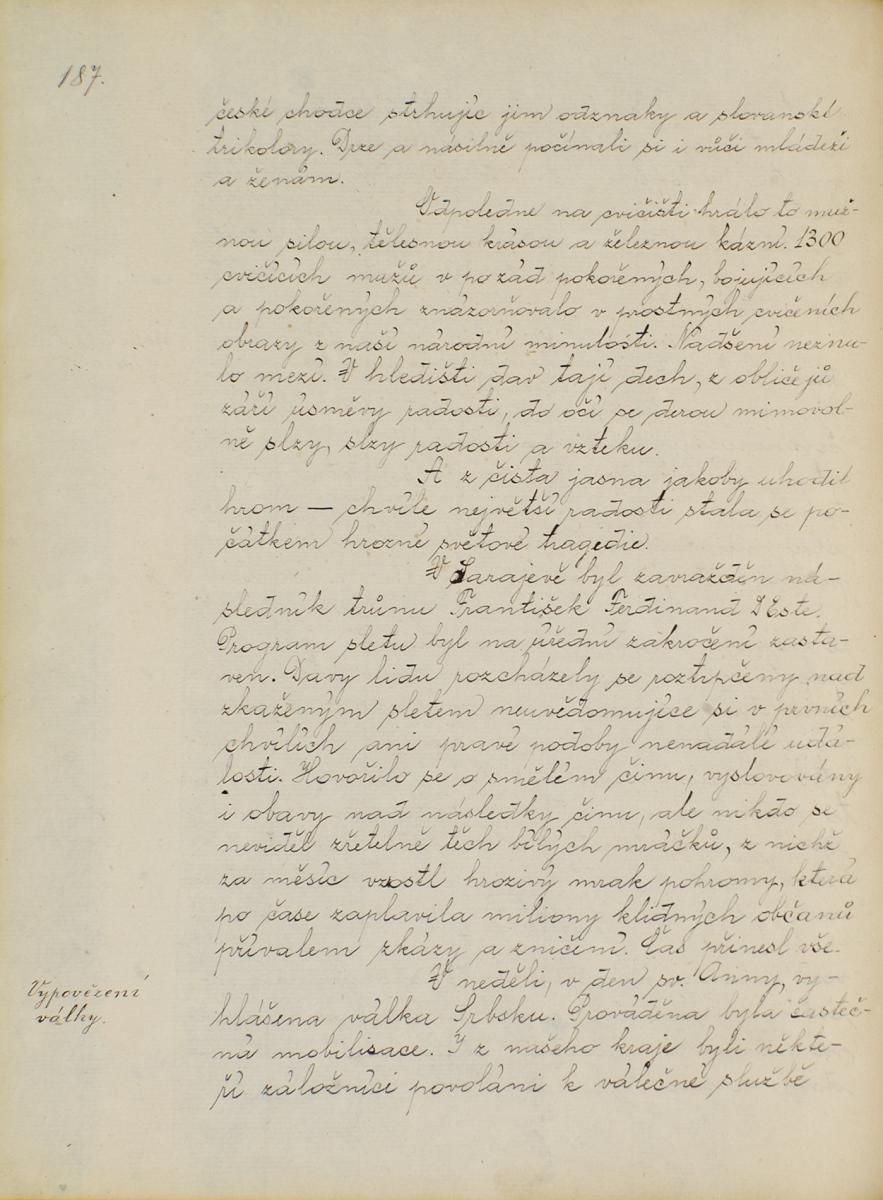 187.
české chodce strhujíc jim odznaky a slovanské
trikolory. Drze a násilně počínali si i vůči mládeži
a ženám.
Odpoledne na cvičišti hrálo to muž-
nou silou, tělesnou krásou a železnou kázní. 1300
cvičících mužů v pozad pokořených, bojujících
a pokořených znázorňovalo v prostných cvičeních
obrazy z naší národní minulosti. Nadšení nezna-
lo mezí. V hledišti dav tají dech, z obličejů
září úsměvy radosti, do očí se derou mimovol-
ně slzy, slzy radosti a vzteku.
A z čista jasna jakoby uhodil
hrom — chvíle největší radosti stala se po-
čátkem hrozné světové tragedie.
V Sarajevě byl zavražděn ná-
sledník trůnu František Ferdinand D'Este.
Program sletu byl na úřední zakročení zasta-
ven. Davy lidu rozcházely se roztrpčeny nad
zkaženým sletem neuvědomujíce si v prvních
chvílích ani pravé podoby nenadálé udá-
losti. Hovořilo se o smělém činu, vyslovovány
i obavy nad následky činu, ale nikdo se
neviděl zřetelně těch bílých mráčků, z nichž
za měsíc vzrostl hrozivý mrak pohromy, která
po čase zaplavila miliony klidných občanů
přívalem zkázy a zničení. Čas přinesl vše.
V neděli, v den sv. Anny, vy-
Vypovězení
války.
hlášena válka Srbsku. Prováděna byla částeč-
ná mobilisace. I z našeho kraje byli někte-
ří záložníci povoláni k válečné službě